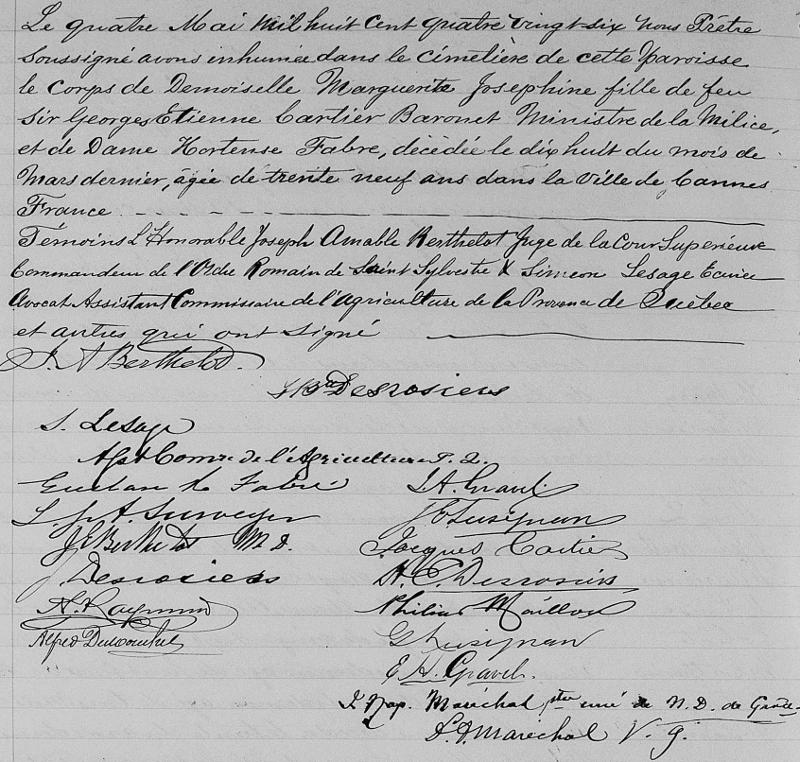 Le quatre Mai mil huit cent quatre vingt six nous Prêtre
soussigné avons inhumée dans le cimetière de cette Paroisse
le corps de Demoiselle Marguerite Josephine fille de feu
Sir Georges Etienne Cartier Baronet Ministre de la Milice,
et de Dame Hortense Fabre, décédée le dix huit du mois de
Mars dernier, âgée de trente neuf ans dans la Ville de Cannes
France
Témoins L'Honorable Joseph Amable Berthelot Juge de la Cour Superieure
Commandeur de l'Ordre Romain de Saint Sylvestre & Simeon Lesage Ecuier
Avocat Assistant Commissaire de l'Agriculture de la Province de Quebec
et autres qui ont signé
J. A Berthelot
Desrosiers
S. Lesage
Asst Comre de l'Agriculture P. Q.
Fabre
J. Berthelot M. D.
J Desrosiers
Lusignan
Jacques Cartier
H. C. Desrosiers
A. Raymond
Philias Mailloux
Alfred
G Lusignan
E H. Gravel.
Nap. Maréchal ptre curé de N. D. de Grâce
L. D. Maréchal V. G.